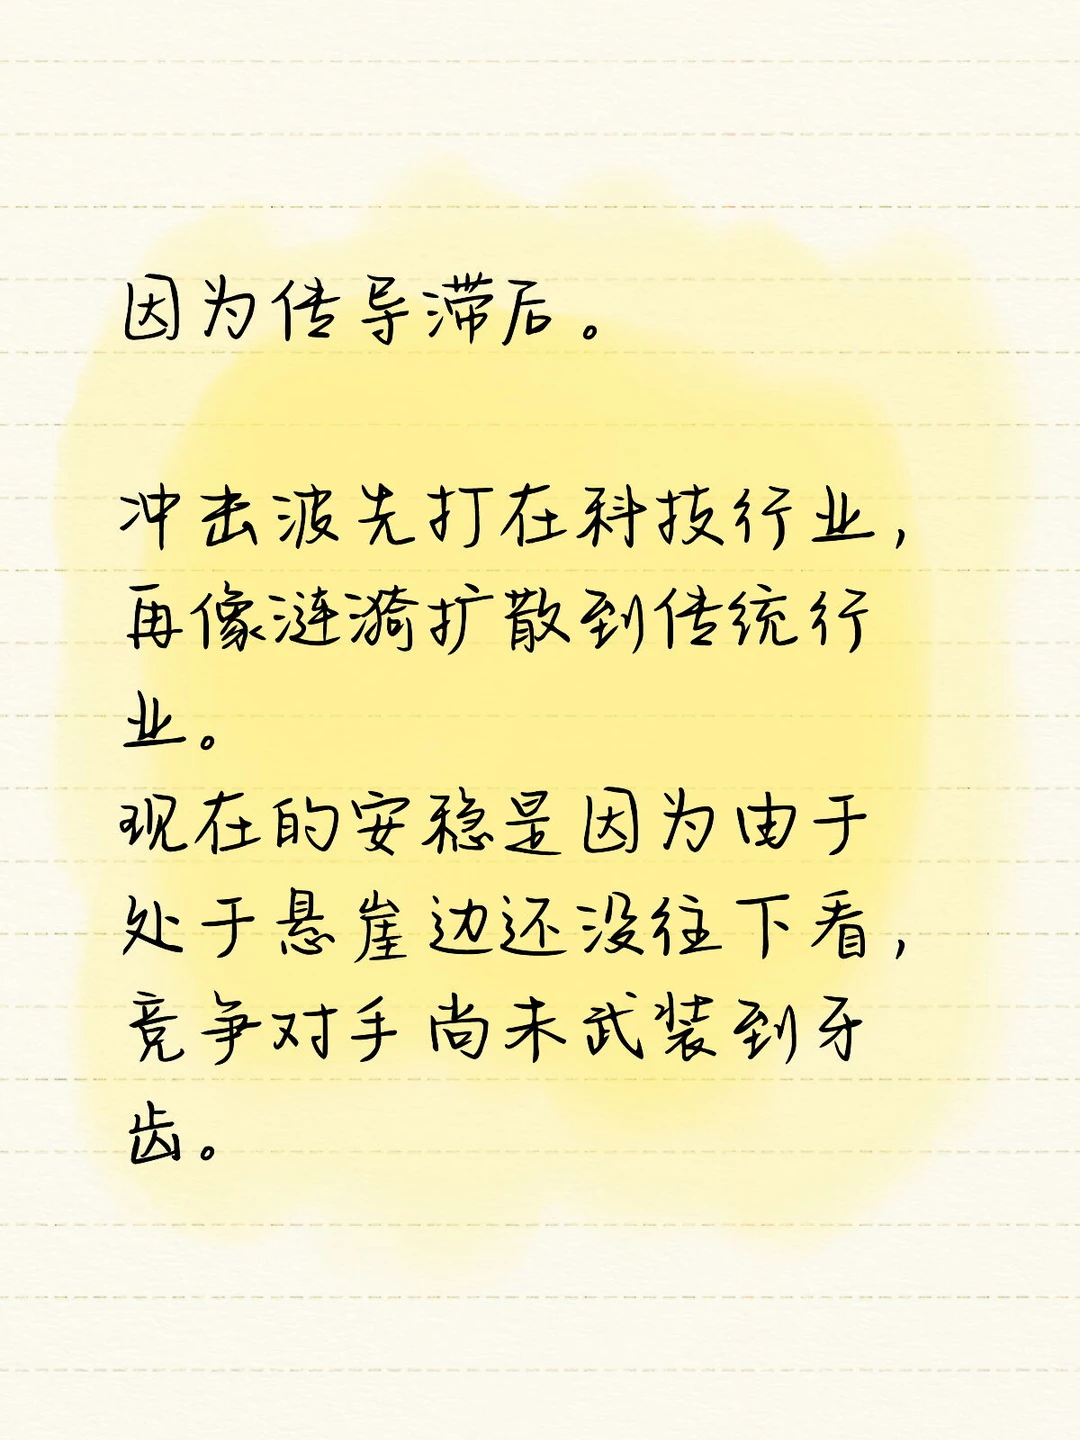 因为传导滞后。
冲击波先打在科技行业，
再像涟漪扩散到传统行
业。
现在的安稳是因为由于
处于悬崖边还没往下看，
竞争对手尚未武装到牙
齿。